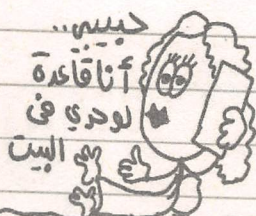 حبيبي..
أنا قاعدة
لوحدي فى
البيت